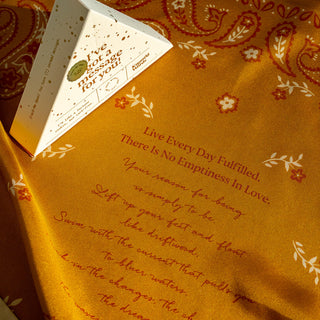 I've
got a
message
for you!
Live Every Day Fulfilled.
There Is No Emptiness In Love.
Your reason for being
is simply to be.
Lift up your feet and float
like driftwood,
Swim with the current that pulls you
to bluer waters.
in the changes, the
the dream